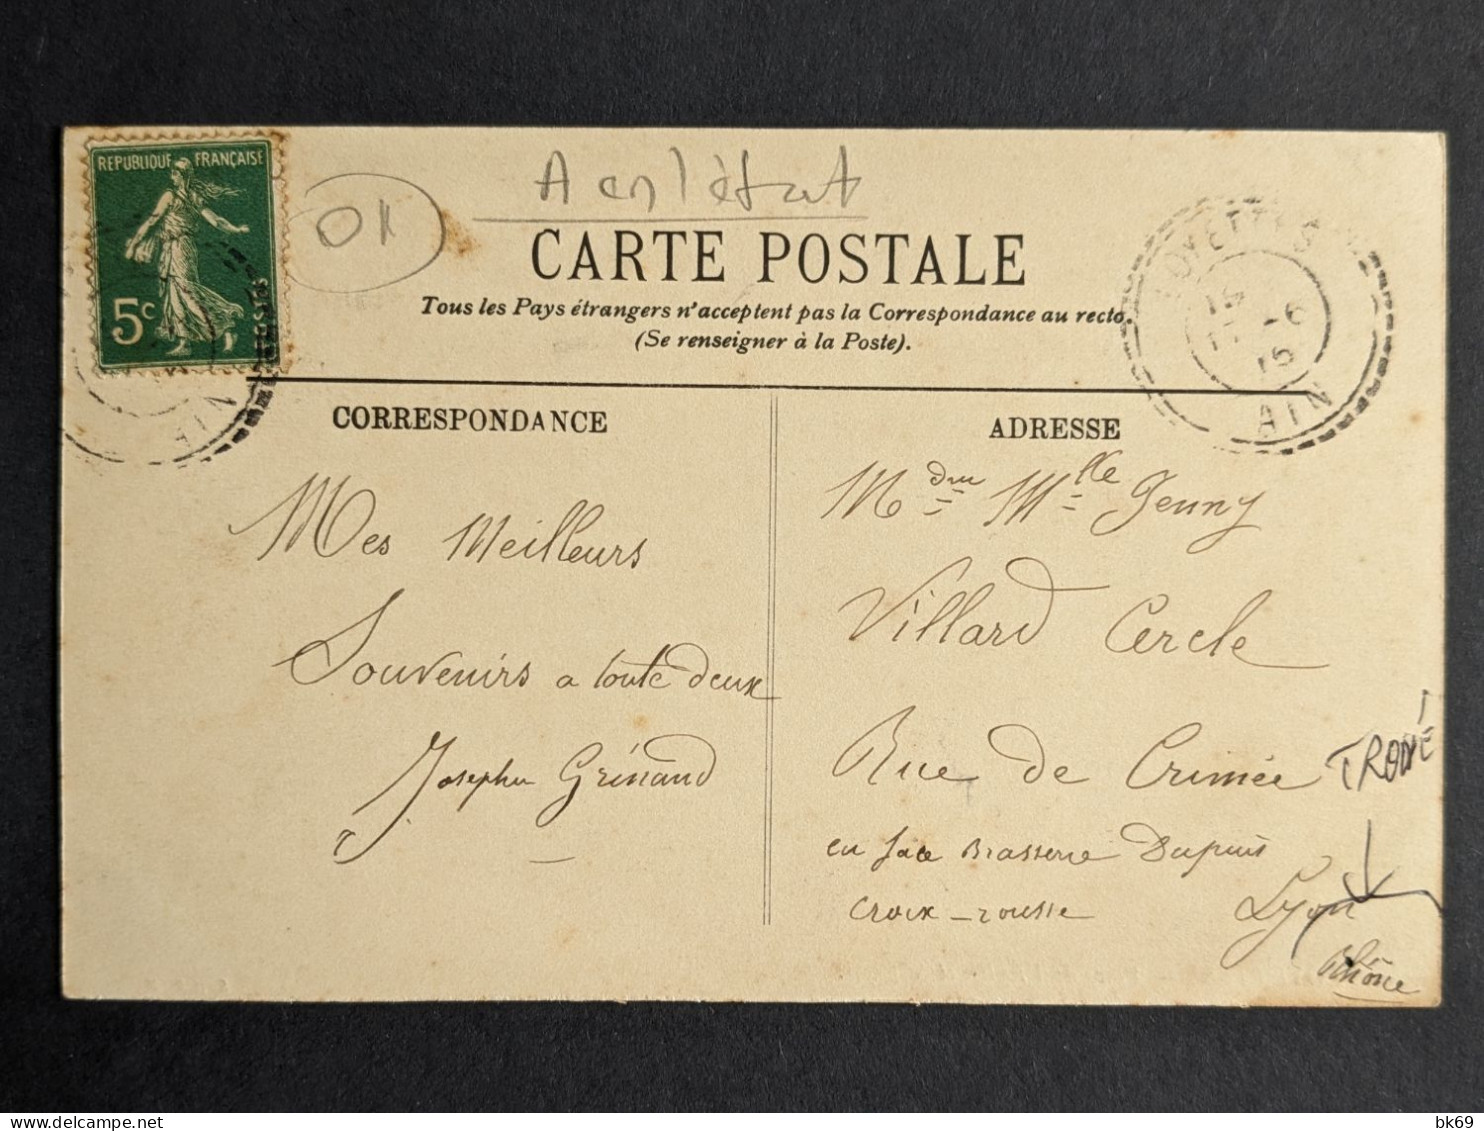 REPUBLIQUE FRANÇAISE
5c
POSTES
OK
A en l'état
CARTE POSTALE
Tous les Pays étrangers n'acceptent pas la Correspondance au recto.
(Se renseigner à la Poste).
LOYETTES
15 -6
15
AIN
AIN
CORRESPONDANCE
Mes Meilleurs
Souvenirs a toute deux
Grénaud
ADRESSE
Mdm Mlle Jenny
Villard Cercle
Rue de Crimée
en face Brasserie Dupuis
Croix-rousse Lyon
Rhône
bk69